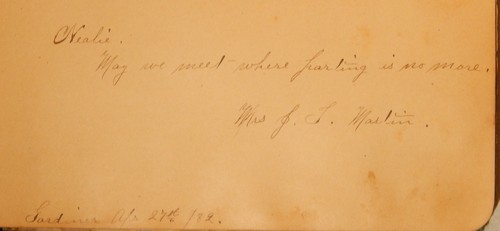 Nealie.
May we meet where parting is no more.
Mrs J. S. Martin.
Gardiner Apr 27th /82.